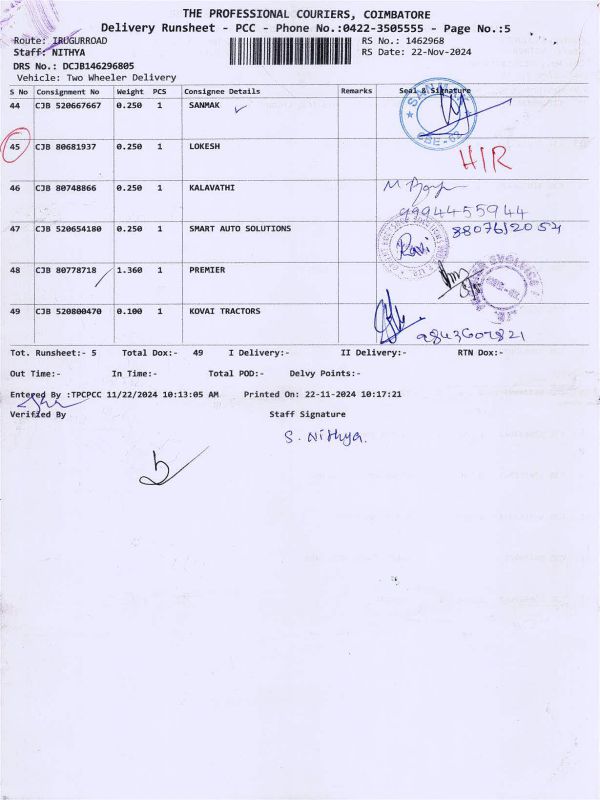 THE PROFESSIONAL COURIERS, COIMBATORE
Delivery Runsheet - PCC - Phone No.:0422-3505555 - Page No.:5
Route: IRUGURROAD RS No.: 1462968
Staff: NITHYA RS Date: 22-Nov-2024
DRS No.: DCJB146296805
Vehicle: Two Wheeler Delivery
S No Consignment No Weight PCS Consignee Details Remarks Seal & Signature
44 CJB 520667667 0.250 1 SANMAK
45 CJB 80681937 0.250 1 LOKESH H/R
46 CJB 80748866 0.250 1 KALAVATHI
9994455944
47 CJB 520654180 0.250 1 SMART AUTO SOLUTIONS Ravi
48 CJB 80778718 1.360 1 PREMIER
49 CJB 520800470 0.100 1 KOVAI TRACTORS
9843607821
Tot. Runsheet:- 5 Total Dox:- 49 I Delivery:- II Delivery:- RTN Dox:-
Out Time:- In Time:- Total POD:- Delvy Points:-
Entered By :TPCPCC 11/22/2024 10:13:05 AM Printed On: 22-11-2024 10:17:21
Verified By Staff Signature
S. Nithya.